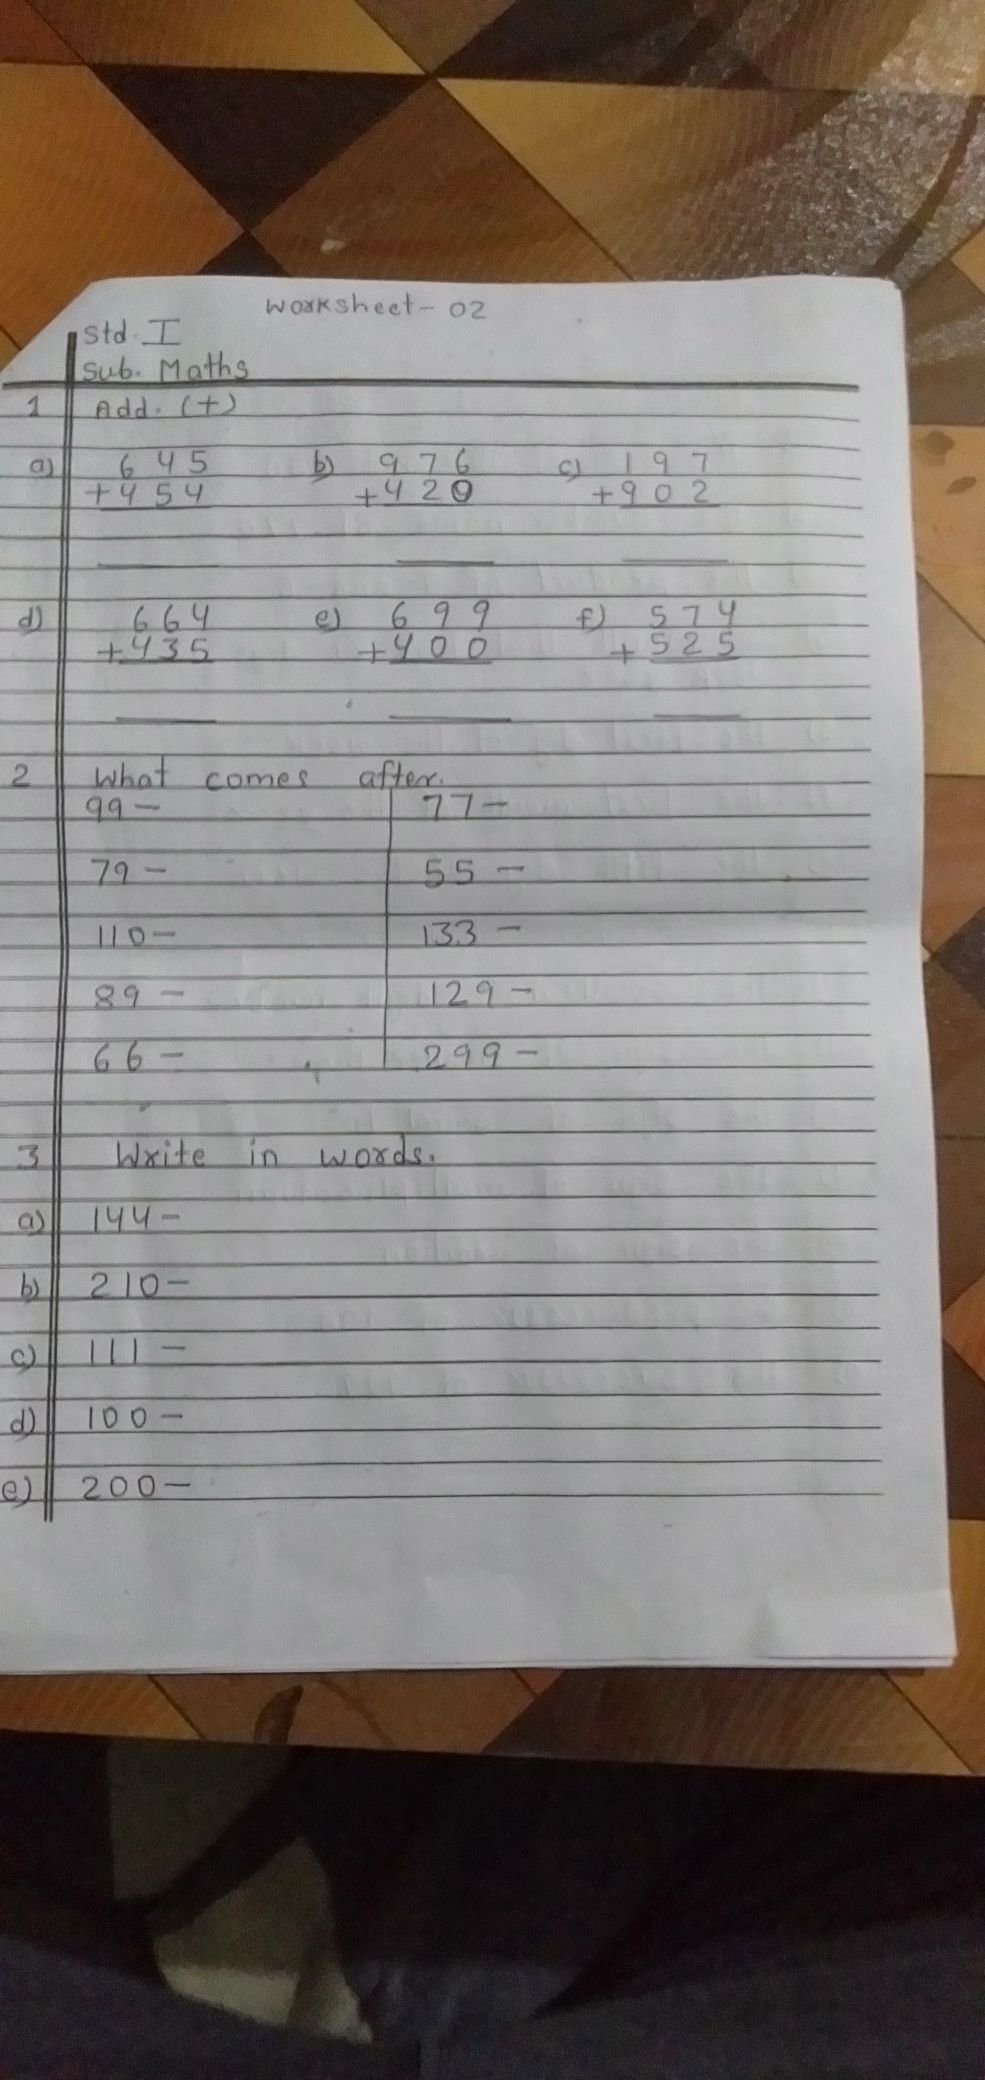 Worksheet - 02
Std. I
Sub. Maths
1 Add. (+)
a) 645 b) 976 c) 197
+454 +420 +902
d) 664 e) 699 f) 574
+435 +400 +525
2 What comes after.
99 - 77 -
79 - 55 -
110 - 133 -
89 - 129 -
66 - 299 -
3 Write in words.
a) 144 -
b) 210 -
c) 111 -
d) 100 -
e) 200 -